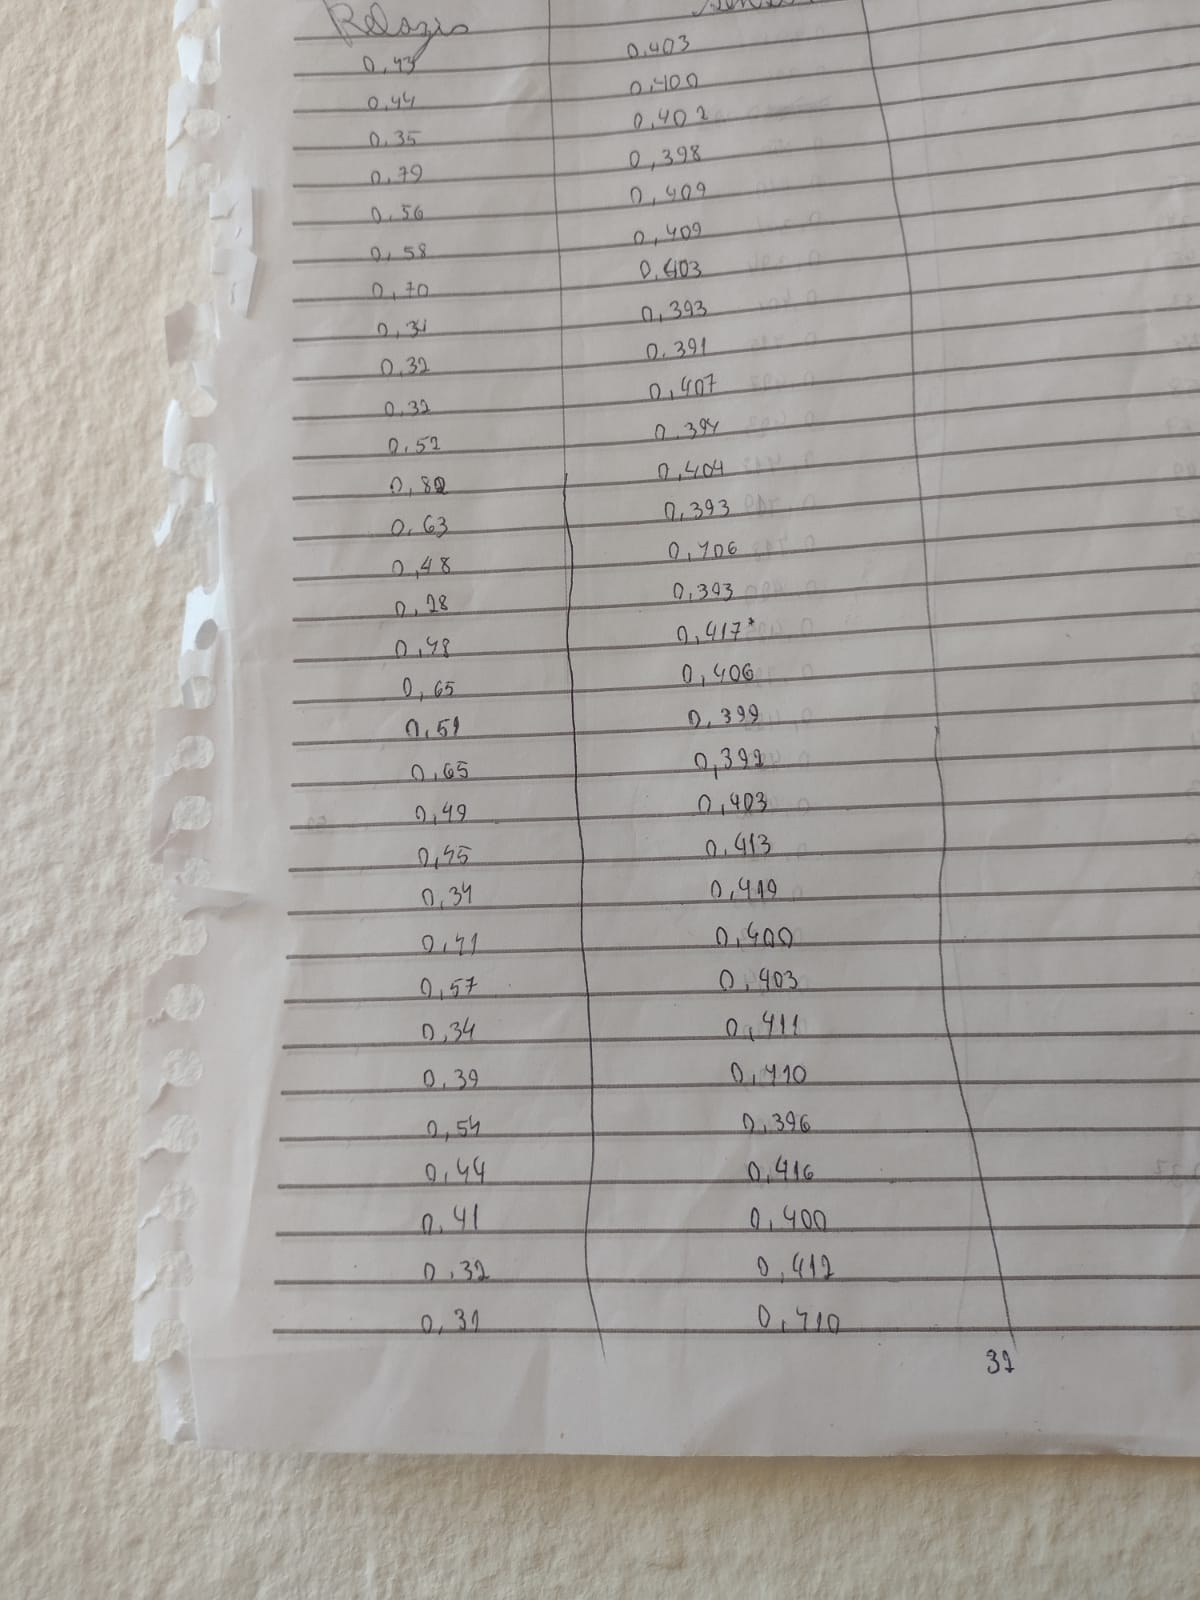 Relogio
0,43 0,403
0,44 0,400
0,35 0,402
0,79 0,398
0,56 0,409
0,58 0,409
0,70 0,403
0,31 0,393
0,32 0,391
0,32 0,407
0,52 0,394
0,82 0,404
0,63 0,393
0,48 0,406
0,28 0,393
0,48 0,417*
0,65 0,406
0,51 0,399
0,65 0,392
0,49 0,403
0,45 0,413
0,34 0,419
0,41 0,400
0,57 0,403
0,34 0,411
0,39 0,410
0,54 0,396
0,44 0,416
0,41 0,400
0,32 0,412
0,31 0,410
31